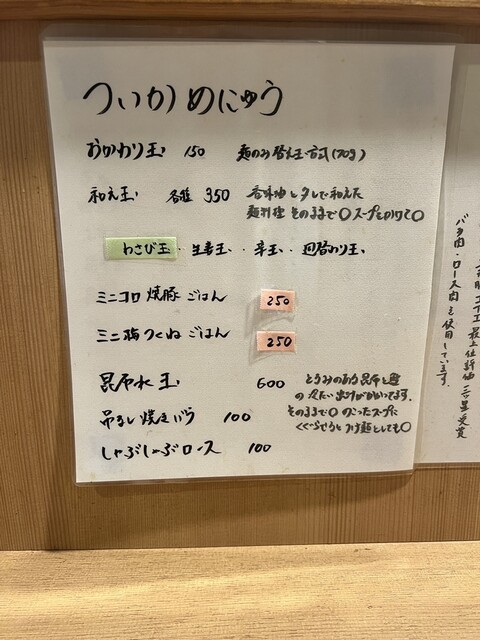 ついかめにゅう
おかわり玉 150 麺のみ替え玉方式(70g)
和え玉 各種 350 香味油とタレで和えた
麺料理 そのままで〇 スープをかけて〇
わさび玉・生姜玉・辛玉・日替わり玉
ミニコロ焼豚ごはん 250
ミニ梅つくねごはん 250
昆布水玉 600 とろみのある昆布と
の冷たい出汁がかかってます。
そのままで〇 のこったスープに
くぐらせるとつけ麺としても〇
吊るし焼きバラ 100
しゃぶしゃぶロース 100
最上位評価 三ツ星受賞
バラ肉・ロース肉を使用しています。